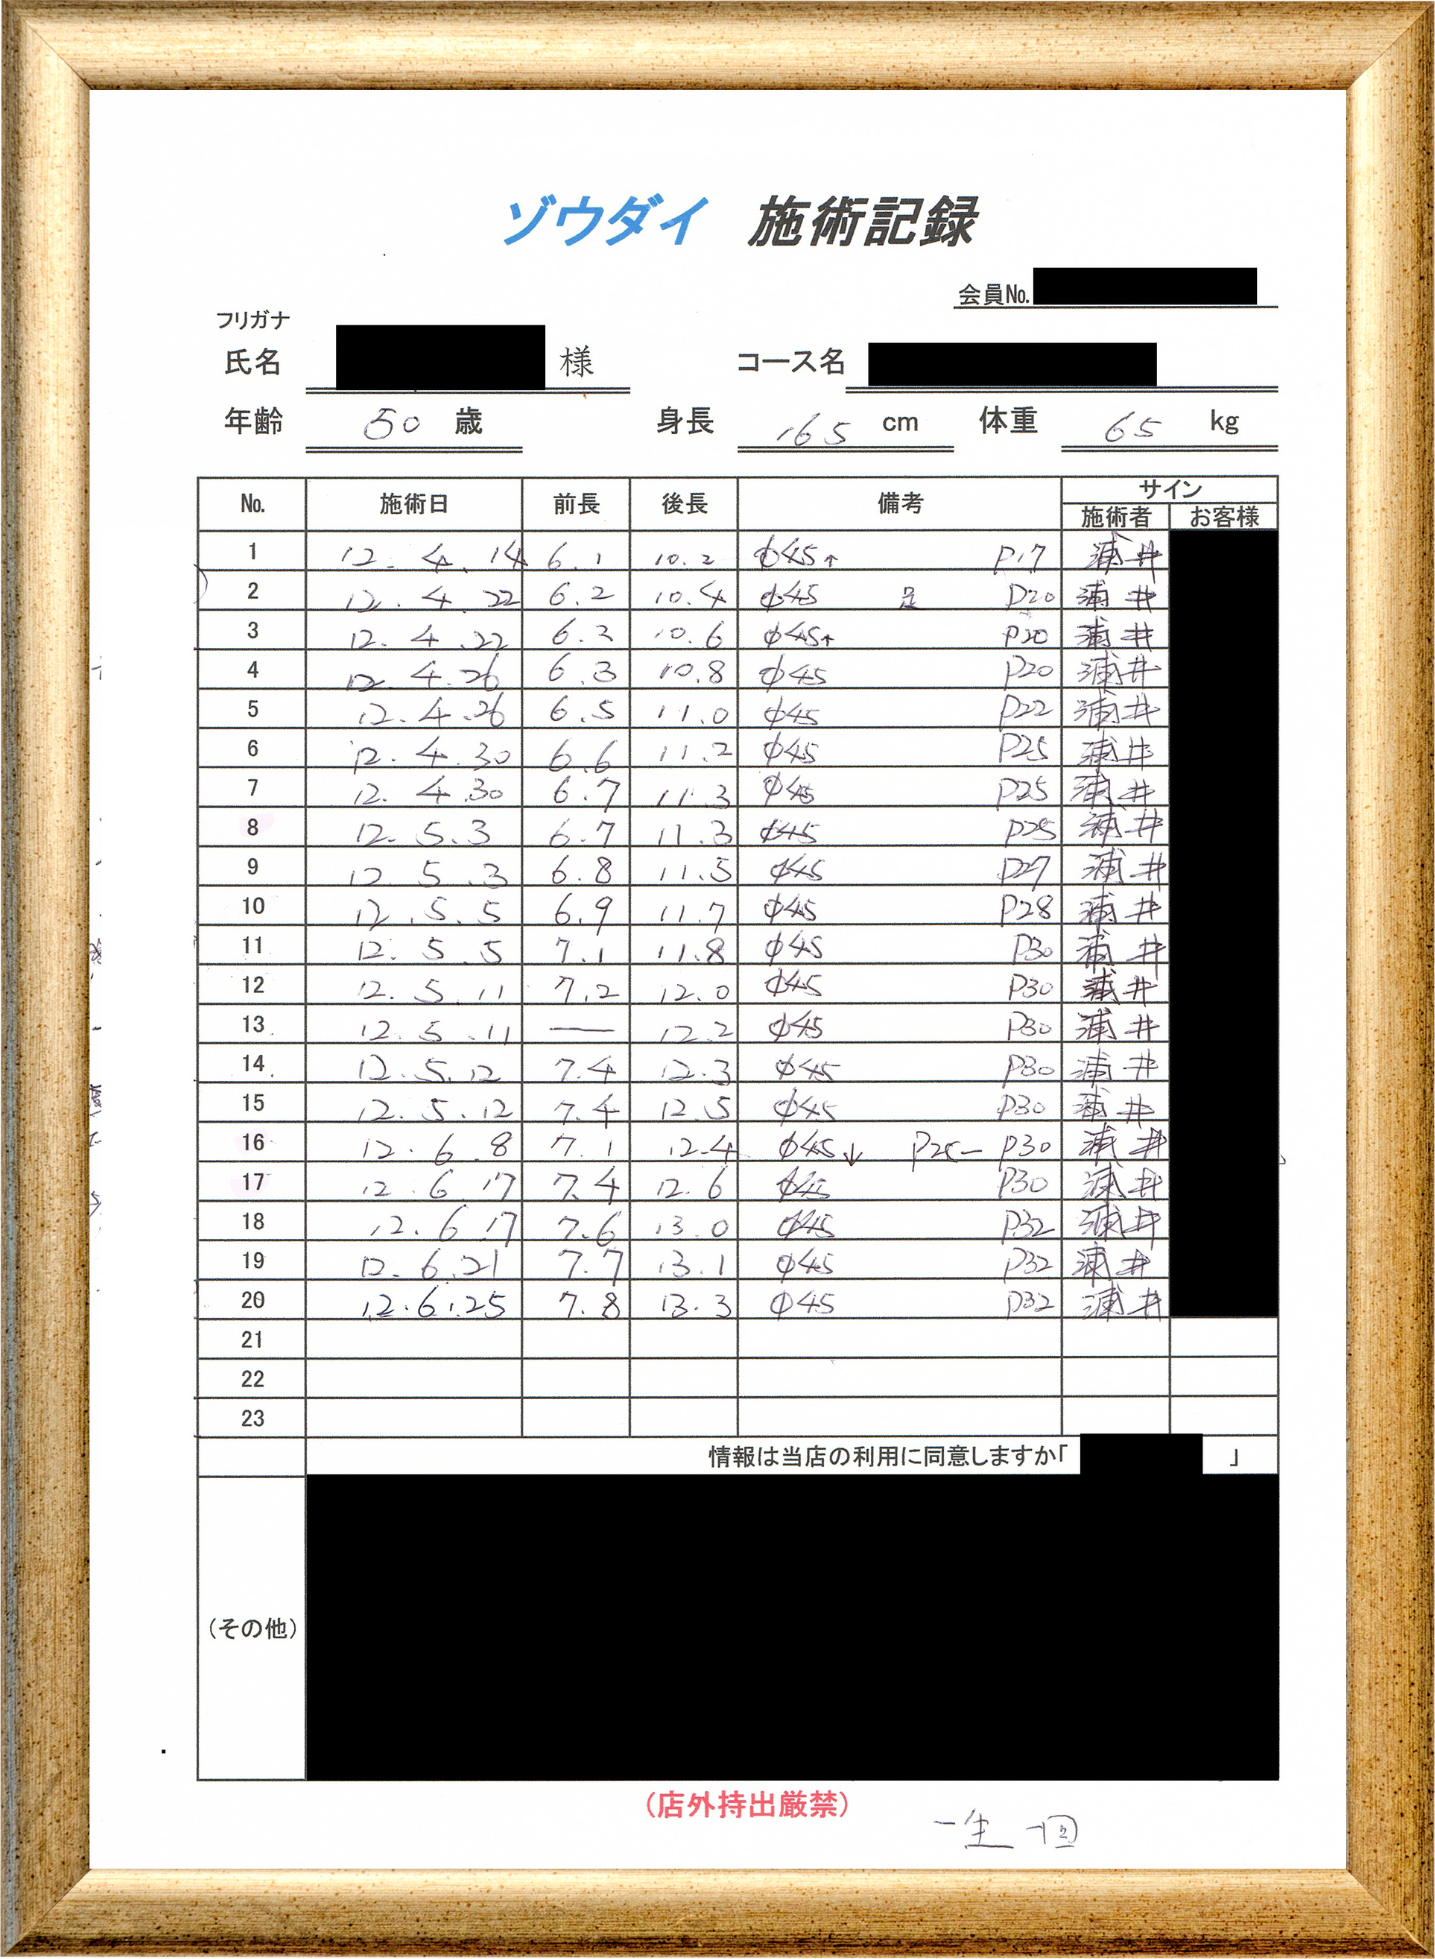 ゾウダイ 施術記録
会員No.
フリガナ
氏名 様 コース名
年齢 50 歳 身長 165 cm 体重 65 kg
No. 施術日 前長 後長 備考 サイン
施術者 お客様
1 12.4.14 6.1 10.2 φ45↑ P17 浦井
2 12.4.22 6.2 10.4 φ45 P20 浦井
3 12.4.22 6.2 10.6 φ45↑ P20 浦井
4 12.4.26 6.3 10.8 φ45 P20 浦井
5 12.4.26 6.5 11.0 φ45 P22 浦井
6 12.4.30 6.6 11.2 φ45 P25 浦井
7 12.4.30 6.7 11.3 φ45 P25 浦井
8 12.5.3 6.7 11.3 φ45 P25 浦井
9 12.5.3 6.8 11.5 φ45 P27 浦井
10 12.5.5 6.9 11.7 φ45 P28 浦井
11 12.5.5 7.1 11.8 φ45 P30 浦井
12 12.5.11 7.2 12.0 φ45 P30 浦井
13 12.5.11 — 12.2 φ45 P30 浦井
14 12.5.12 7.4 12.3 φ45 P30 浦井
15 12.5.12 7.4 12.5 φ45 P30 浦井
16 12.6.8 7.1 12.4 φ45↓ P25– P30 浦井
17 12.6.17 7.4 12.6 φ45 P30 浦井
18 12.6.17 7.6 13.0 φ45 P32 浦井
19 12.6.21 7.7 13.1 φ45 P32 浦井
20 12.6.25 7.8 13.3 φ45 P32 浦井
21
22
23
情報は当店の利用に同意しますか「 」
（その他）
（店外持出厳禁）
一生一回